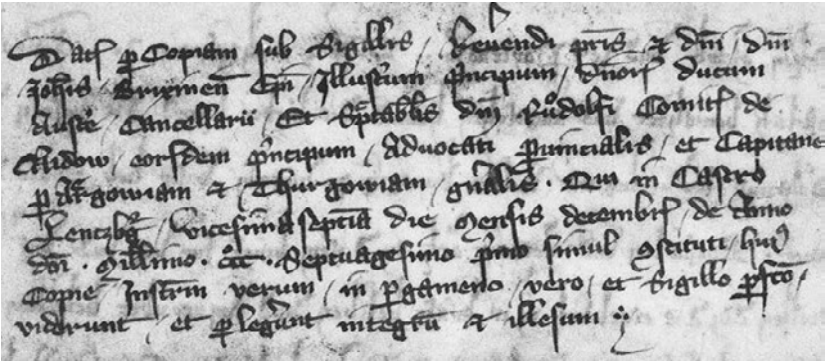 Datʒ p Copiam sub Sigillis, Reverendi pris et dni, dni
Johis Brixinen Epi, Illustrium pncipum, dnorʒ ducum
Austrie Cancellarii, Et Spctabilis dni Rudolfi Comitʒ de
Nidow, eorsdem pncipum, Advocati Pvincialis, et Capitanei
p Argowiam et Thurgowiam, gnalis. Qui in Castro
Lentzbg, vicesimaseptia die Mensis decembrʒ, de Anno
dni. Millimo. ccc. Septuagesimo pmo simul 9stituti, hui9
Copie, Instrm verum, in pgameno, vero, et Sigillo psco,
viderunt, et plegunt integru et illesum